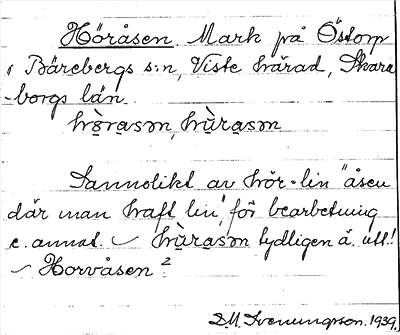 Höråsen. Mark på Östorp
i Bärebergs s:n, Viste härad, Skara-
borgs län.
hö̀rasən, hù̀rasən
Sannolikt av hör = lin "åsen
där man haft lin", för bearbetning
e. annat. ~ hù̀rasən tydligen ä. utt.!
~ Horvåsen?
D.M. Svenungsson. 1939.